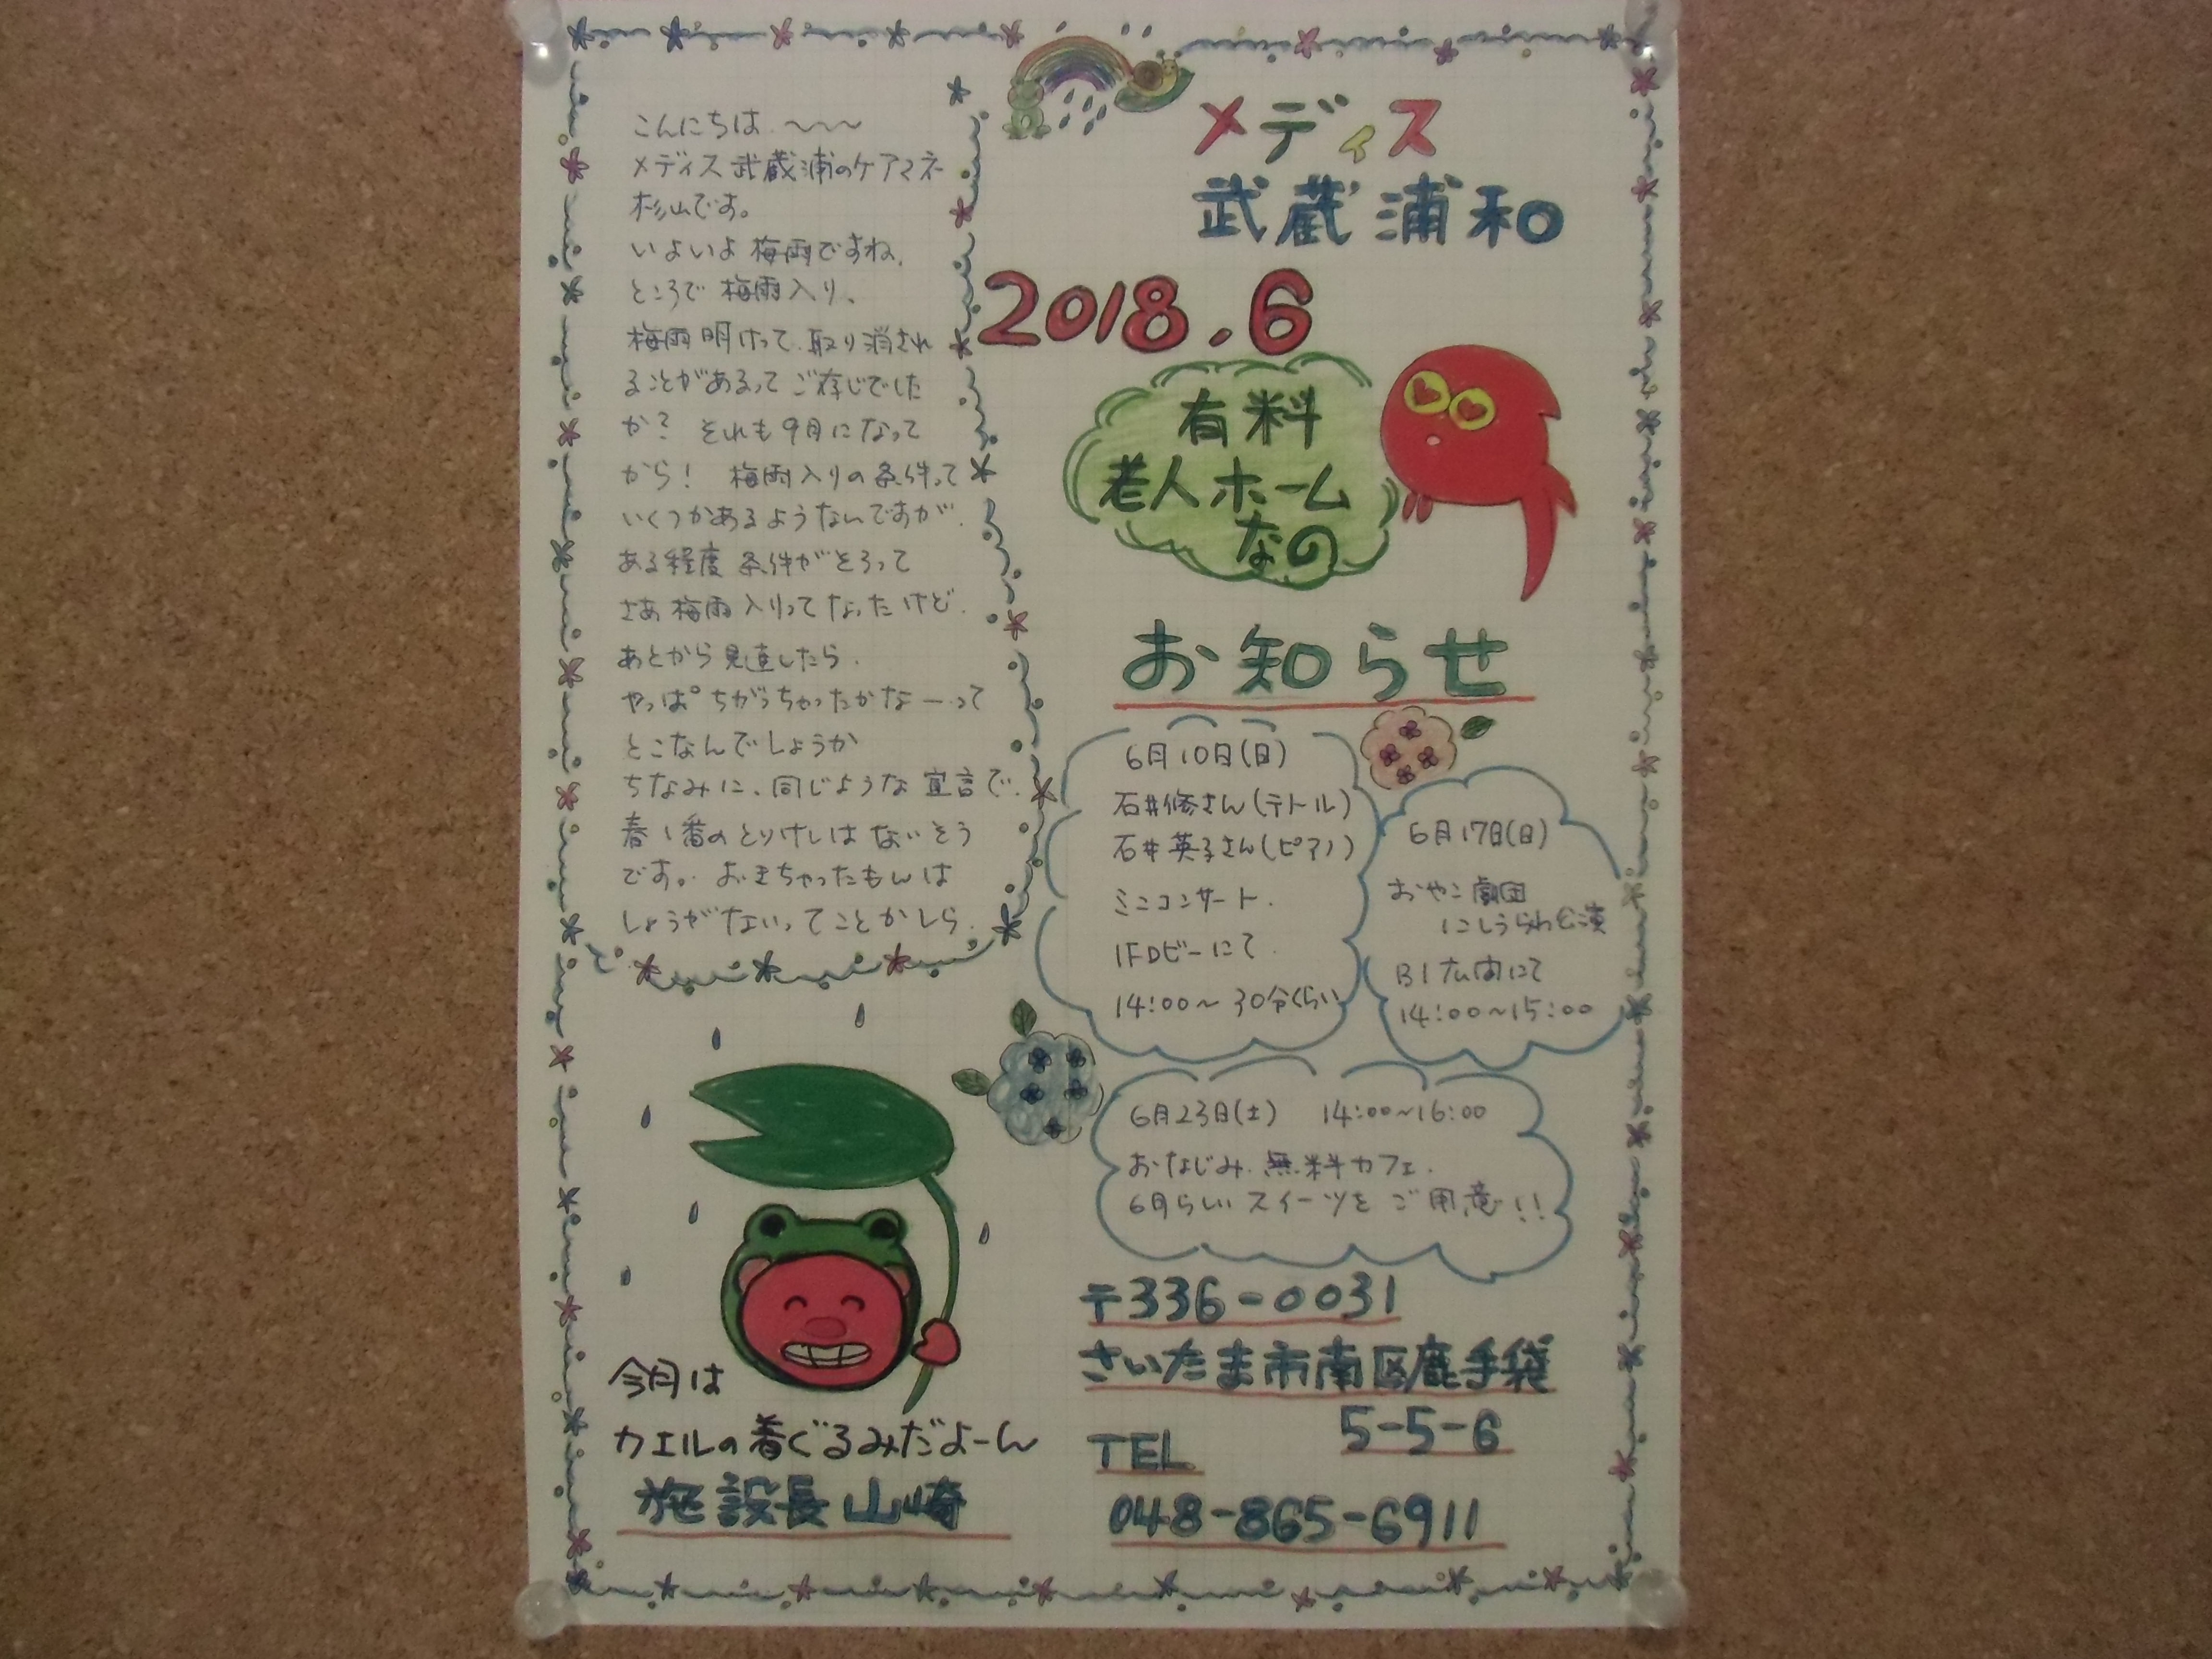 こんにちは.〜〜〜
メディス武蔵浦のケアマネ
杉山です。
いよいよ梅雨ですね.
ところで梅雨入り、
梅雨明けって.取り消され
ることがあるってご存じでした
か? それも9月になって
から! 梅雨入りの条件って
いくつかあるようなんですが.
ある程度条件がそろって
さあ梅雨入りってなったけど.
あとから見直したら.
やっぱ ちがっちゃったかなーって
とこなんでしょうか
ちなみに、同じような宣言で.
春1番のとりけしはないそう
です。おきちゃったもんは
しょうがないってことかしら.
メディス
武蔵浦和
2018.6
有料
老人ホーム
なの
お知らせ
6月10日(日)
石井修さん(テトル)
石井英子さん(ピアノ)
ミニコンサート.
1Fロビーにて.
14:00〜30分くらい
6月17日(日)
おやこ劇団
にしうらわ公演
B1広間にて
14:00〜15:00
6月23日(土) 14:00〜16:00
おなじみ.無料カフェ.
6月らしいスイーツをご用意!!
今月は
カエルの着ぐるみだよーん
施設長山崎
〒336-0031
さいたま市南区鹿手袋
5-5-6
TEL
048-865-6911